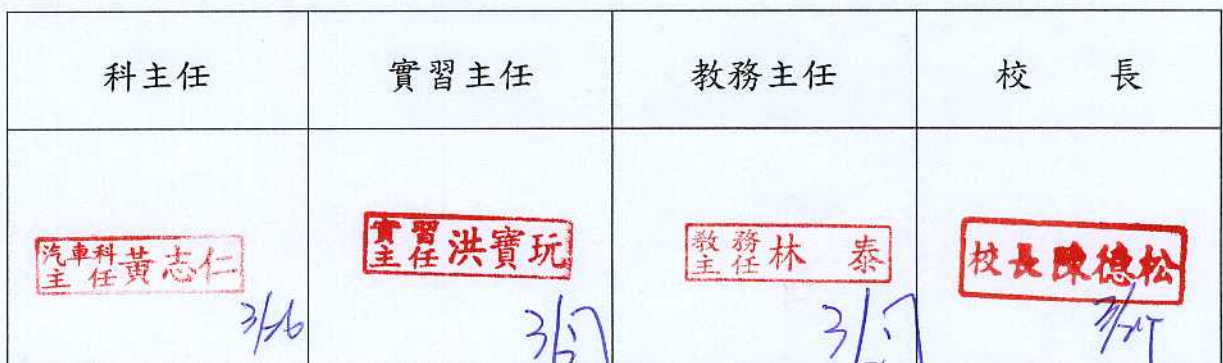 科主任 實習主任 教務主任 校 長
汽車科主任 黃志仁 實習主任 洪寶玩 教務主任 林 泰 校長陳德松